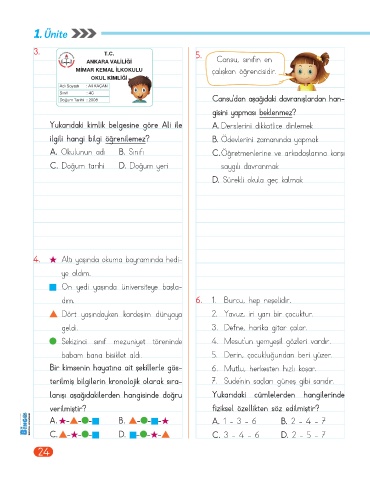 1. Ünite
3.
T.C.
ANKARA VALİLİĞİ
MİMAR KEMAL İLKOKULU
OKUL KİMLİĞİ
Adı Soyadı : Ali KAÇAN
Sınıfı : 4C
Doğum Tarihi : 2008
Yukarıdaki kimlik belgesine göre Ali ile
ilgili hangi bilgi öğrenilemez?
A. Okulunun adı B. Sınıfı
C. Doğum tarihi D. Doğum yeri
4. ★ Altı yaşında okuma bayramında hedi-
ye aldım.
■ On yedi yaşında üniversiteye başla-
dım.
▲ Dört yaşındayken kardeşim dünyaya
geldi.
● Sekizinci sınıf mezuniyet töreninde
babam bana bisiklet aldı.
Bir kimsenin hayatına ait şekillerle gös-
terilmiş bilgilerin kronolojik olarak sıra-
lanışı aşağıdakilerden hangisinde doğru
verilmiştir?
A. ★-▲-●-■ B. ▲-●-■-★
C. ▲-★-●-■ D. ■-●-★-▲
BİNGO
24
5.
Cansu, sınıfın en
çalışkan öğrencisidir.
Cansu'dan aşağıdaki davranışlardan han-
gisini yapması beklenmez?
A. Derslerini dikkatlice dinlemek
B. Ödevlerini zamanında yapmak
C. Öğretmenlerine ve arkadaşlarına karşı
saygılı davranmak
D. Sürekli okula geç kalmak
6. 1. Burcu, hep neşelidir.
2. Yavuz, iri yarı bir çocuktur.
3. Defne, harika gitar çalar.
4. Mesut'un yemyeşil gözleri vardır.
5. Derin, çocukluğundan beri yüzer.
6. Mutlu, herkesten hızlı koşar.
7. Sude'nin saçları güneş gibi sarıdır.
Yukarıdaki cümlelerden hangilerinde
fiziksel özellikten söz edilmiştir?
A. 1 - 3 - 6 B. 2 - 4 - 7
C. 3 - 4 - 6 D. 2 - 5 - 7